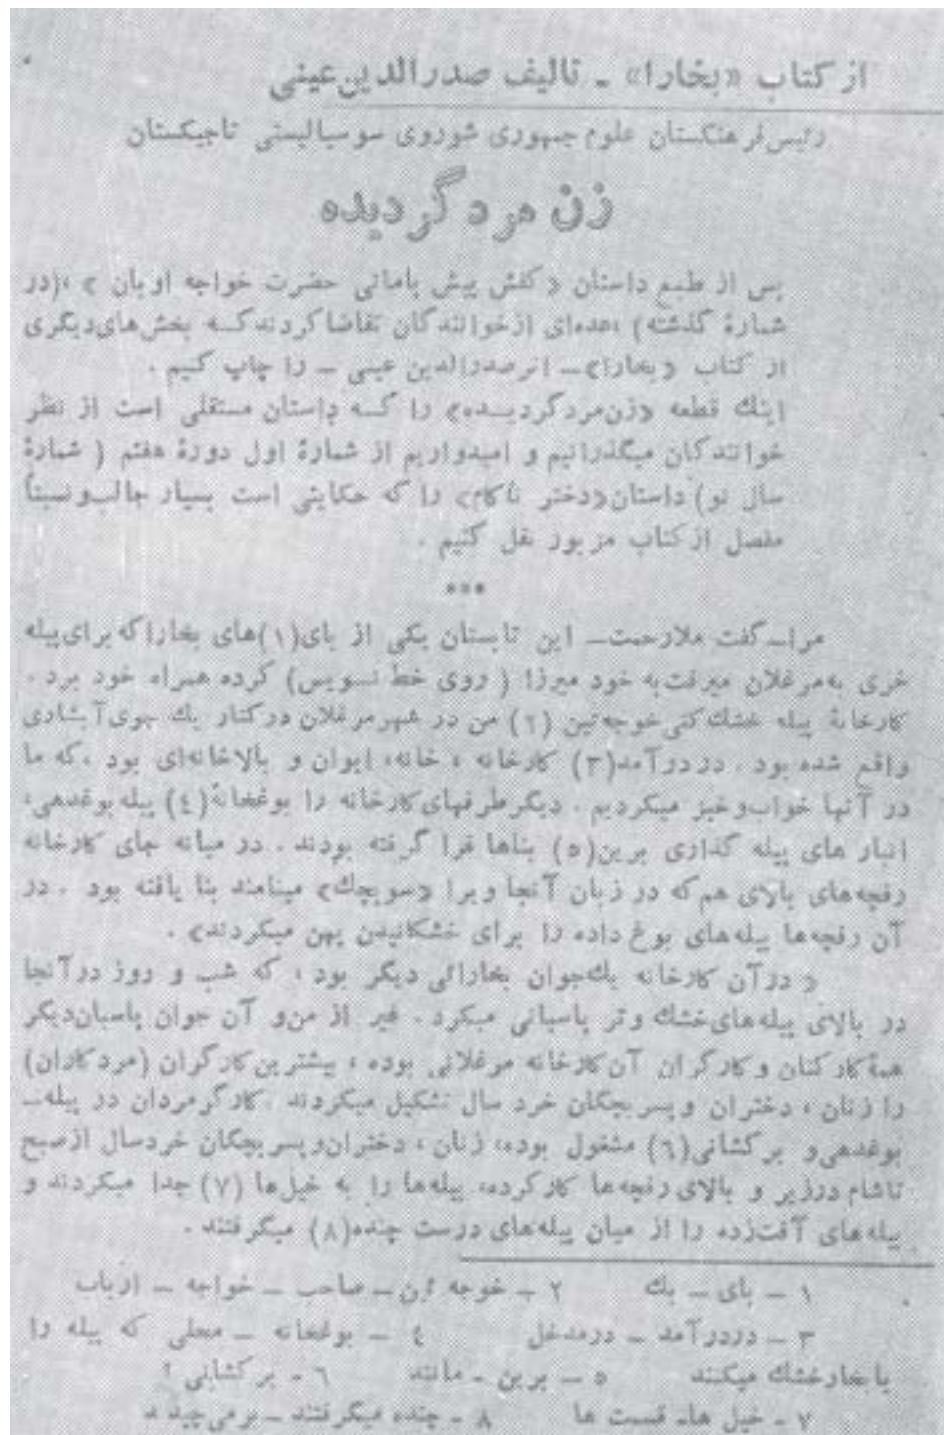 از کتاب «بخارا» ـ تالیف صدرالدین عینی
رئیس فرهنگستان علوم جمهوری شوروی سوسیالیستی تاجیکستان
زن مرد گردیده
پس از طبع داستان «کفش پیش پامانی حضرت خواجه اوبان» (در
شمارهٔ گذشته) عده‌ای از خوانندگان تقاضا کردند که بخش‌های دیگری
از کتاب «بخارا» ـ اثر صدرالدین عینی ـ را چاپ کنیم .
اینك قطعه «زن مرد گردیده» را که داستان مستقلی است از نظر
خوانندگان میگذرانیم و امیدواریم از شمارهٔ اول دورهٔ هفتم ( شمارهٔ
سال نو) داستان «دختر ناکام» را که حکایتی است بسیار جالب و نسبتاً
مفصل از کتاب مزبور نقل کنیم .
***
مرا ـ گفت ملارحمت ـ این تابستان یکی از بای(۱)های بخارا که برای پیله
خری به مرغلان میرفت به خود میرزا ( روی خط نسویس) کرده همراه خود برد .
کارخانهٔ پیله خشك کنی خوجه‌ئین (۲) من در شهر مرغلان در کنار یك جوی آبشاری
واقع شده بود . در درآمد(۳) کارخانه ، خانه، ایوان و بالاخانه‌ای بود ، که ما
در آنها خواب و خیز میکردیم . دیگر طرفهای کارخانه را بوغخانهٔ(٤) پیله بوغدهی،
انبار های پیله گذاری برین(٥) بناها فرا گرفته بودند . در میانه جای کارخانه
رفچه‌های بالای هم که در زبان آنجا ویرا «سویچك» مینامند بنا یافته بود . در
آن رفچه‌ها پیله‌های بوغ داده را برای خشکانیدن پهن میکردند» .
« در آن کارخانه یك جوان بخارائی دیگر بود ، که شب و روز در آنجا
در بالای پیله های خشك و تر پاسبانی میکرد . غیر از من و آن جوان پاسبان دیگر
همهٔ کارکنان و کارگران آن کارخانه مرغلانی بوده ، بیشترین کارگران (مردکاران)
را زنان ، دختران و پسر بچگان خرد سال تشکیل میکردند . کارگر مردان در پیله ـ
بوغدهی و برکشانی(٦) مشغول بوده، زنان ، دختران و پسر بچگان خردسال از صبح
تا شام در زیر و بالای رفچه‌ها کار کرده، پیله‌ها را به خیل‌ها (۷) جدا میکردند و
پیله های آفت‌زده را از میان پیله‌های درست چنده(۸) میگرفتند .
۱ ـ بای ـ بك ۲ ـ خوجه ئین ـ صاحب ـ خواجه ـ ارباب
۳ ـ در درآمد ـ در مدخل ٤ ـ بوغخانه ـ محلی که پیله را
با بخار خشك میکنند ٥ ـ برین ـ مانند ٦ ـ برکشانی ؟
۷ ـ خیل ها ـ قسمت ها ۸ ـ چنده میگرفتند ـ برمی‌چیدند